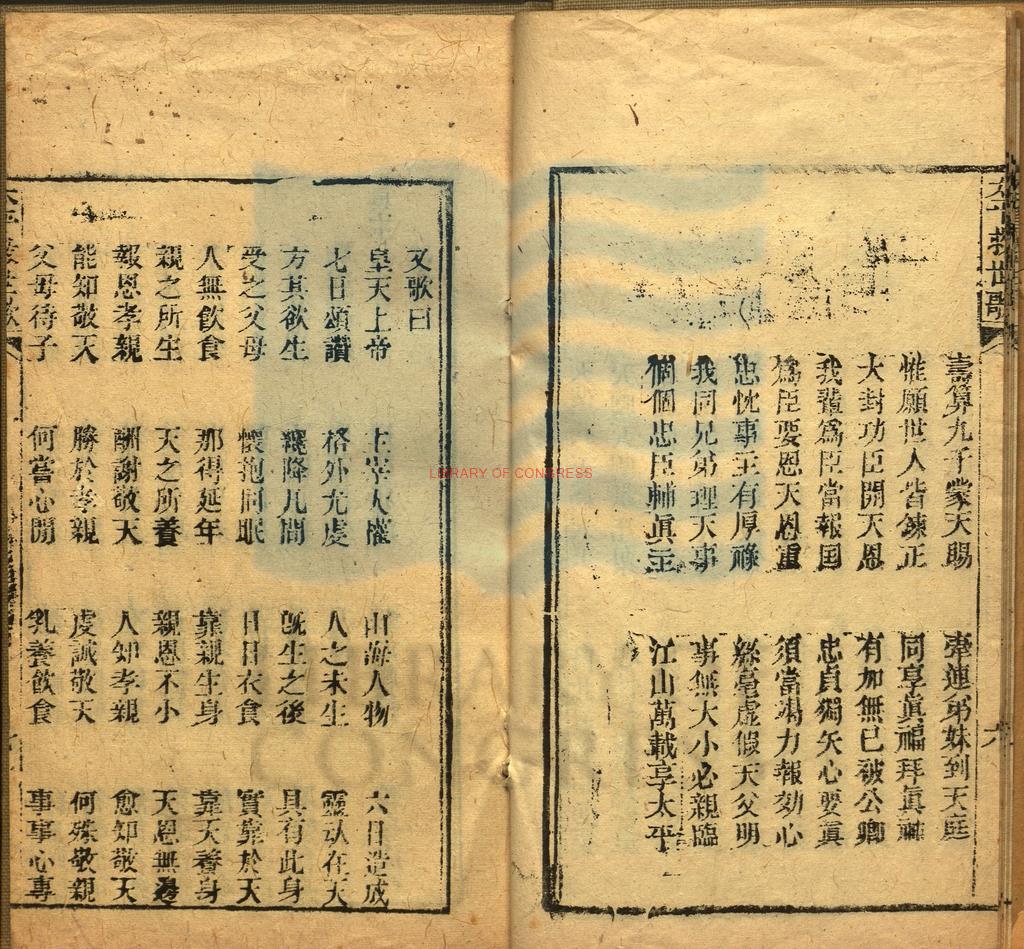 太平救世歌
六
壽算九千蒙天賜 牽連弟妹到天庭
惟願世人皆鍊正 同享眞福拜眞神
大封功臣開天恩 有加無已被公卿
我輩爲臣當報国 忠貞獨矢心要眞
爲臣要恩天恩重 須當竭力報効心
忠忱事主有厚祿 絲毫虛假天父明
我同兄弟理天事 事無大小必親臨
個個忠臣輔眞主 江山萬載享太平
又歌曰
皇天上帝 主宰大權 山海人物 六日造成
七日頌讚 格外尤虔 人之未生 靈魂在天
方其欲生 纔降凡間 旣生之後 具有此身
受之父母 懷抱同眠 日日衣食 實靠於天
人無飲食 那得延年 靠親生身 靠天養身
親之所生 天之所養 親恩不小 天恩無邊
報恩孝親 酬謝敬天 人知孝親 愈知敬天
能知敬天 勝於孝親 虔誠敬天 何殊敬親
父母待子 何嘗心閒 乳養飲食 事事心專
LIBRARY OF CONGRESS